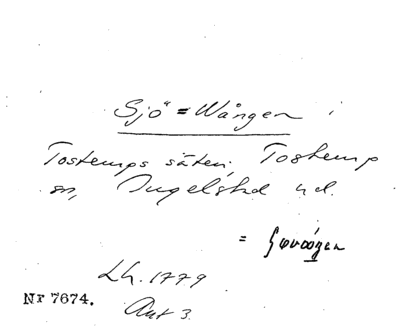 Sjö = Wången
Tostemps säteri, Tostemp
sn, Ingelstad hd.
=
Lh. 1779
Nr 7674.
Akt 3.